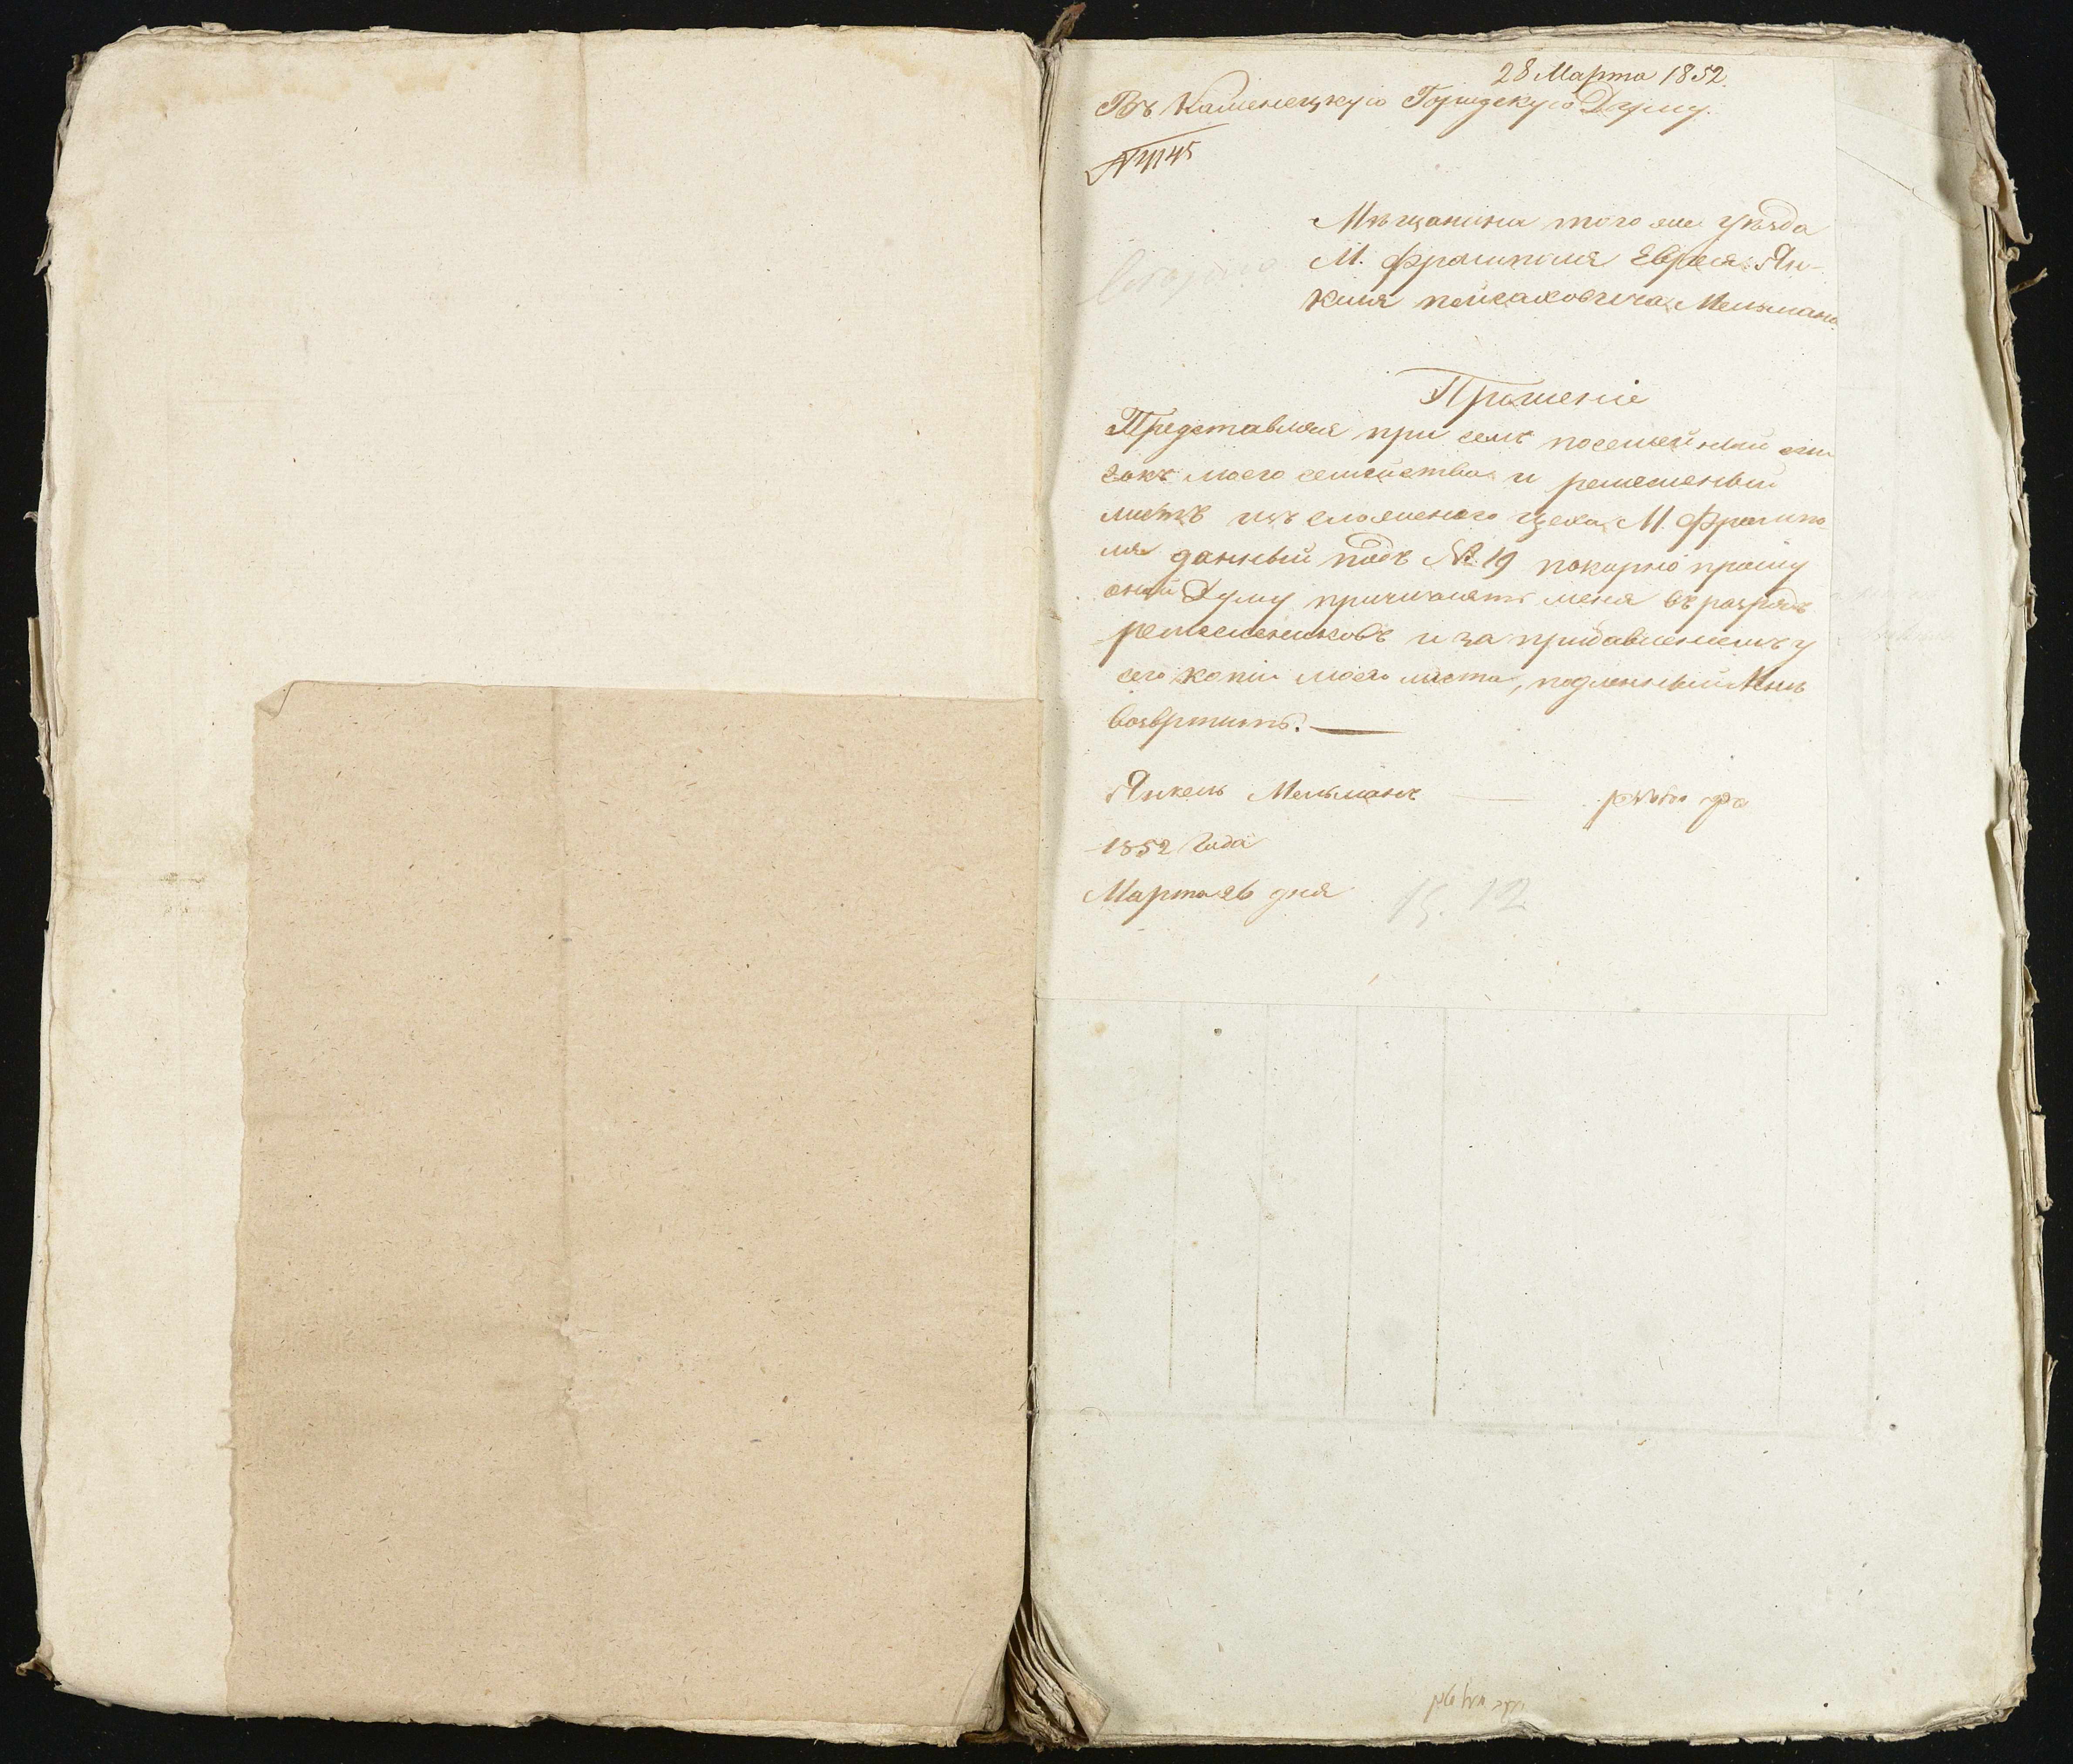 28 Марта 1852.
Въ Каменецкую Городскую Думу.
Мѣщанина того же уѣзда
М. Фрампола Еврея Ян-
келя пейсаховича Мельмана
Прошеніе
Представляя при семъ посемейный спи
сокъ моего семейства и ремесленый
листъ изъ сложеного цеха М. Фрампо
ля данный подъ № 19 покорно прошу
оную Думу причислять меня въ разрядъ
ремеслениковъ и за придавленіемъ у
сего копіи моего листа, подленный Мнѣ
возвртить. —
Янкель Мельманъ —
1852 Года
Марта 26 дня